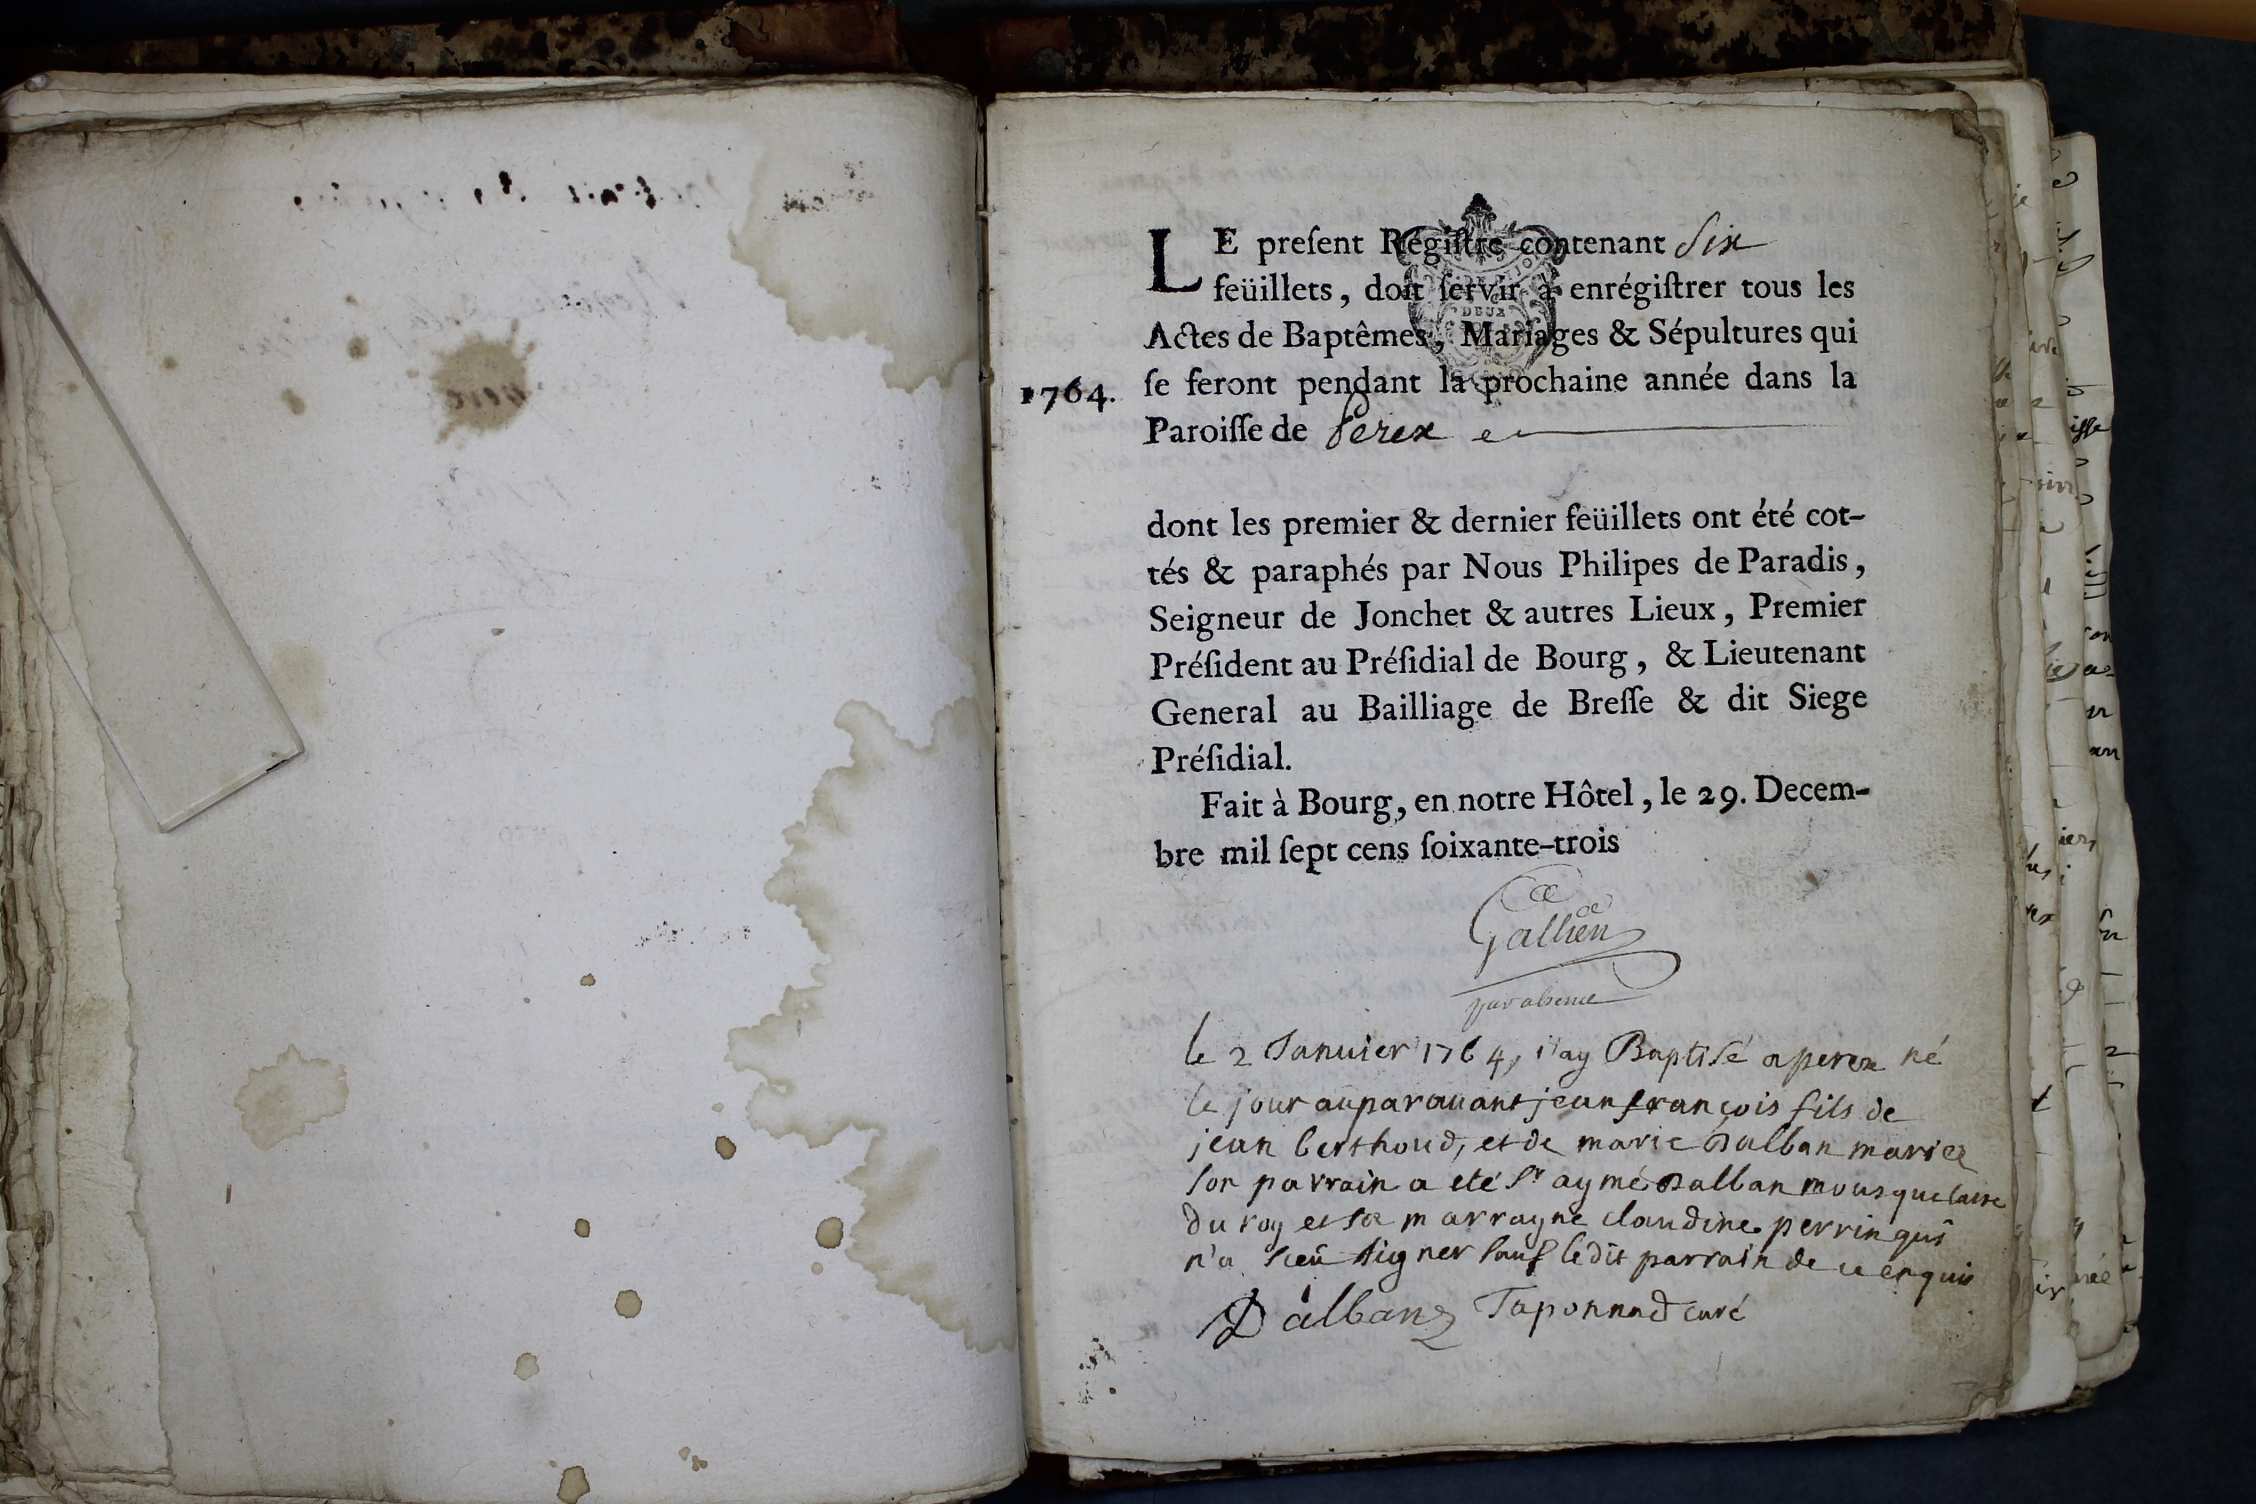 LE preſent Régiſtre contenant Six
feüillets, doit ſervir à enrégiſtrer tous les
Actes de Baptêmes, Mariages & Sépultures qui
1764. ſe feront pendant la prochaine année dans la
Paroiſſe de Perex
DEUX
dont les premier & dernier feüillets ont été cot-
tés & paraphés par Nous Philipes de Paradis,
Seigneur de Jonchet & autres Lieux, Premier
Préſident au Préſidial de Bourg, & Lieutenant
General au Bailliage de Breſſe & dit Siege
Préſidial.
Fait à Bourg, en notre Hôtel, le 29. Decem-
bre mil ſept cens ſoixante-trois
Gallien
par absence
le 2 Janvier 1764, j'ay Baptisé a perex né
le jour auparavant jean françois fils de
jean berthoud, et de marie Dalban mariez
son parrain a eté Sr aymé Dalban mousquetaire
du roy et sa marrayne claudine perrin qui
n'a sceü signer sauf ledit parrain de ce enquis
Dalban Taponnad curé